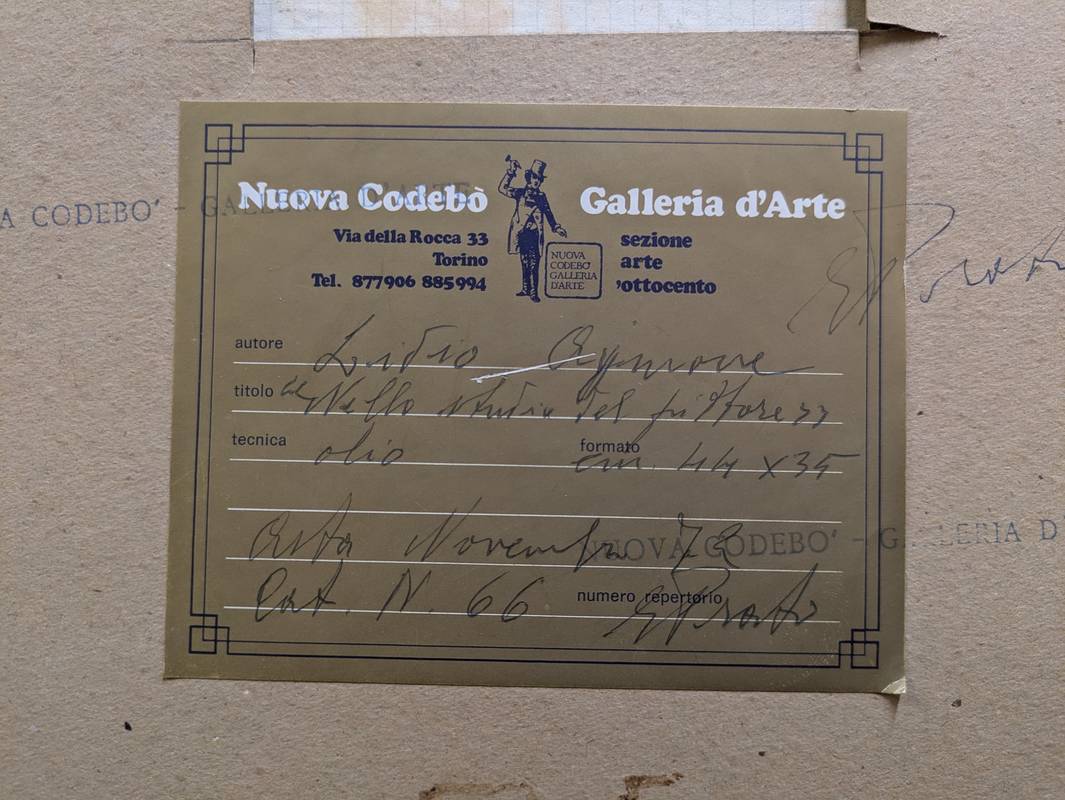 A CODEBO' - GALLERIA D'ARTE
Nuova Codebò Galleria d'Arte
Via della Rocca 33
Torino
Tel. 877906 885994
NUOVA
CODEBO'
GALLERIA
D'ARTE
sezione
arte
'ottocento
autore Lidio Ajmone
titolo Nello studio del pittore
tecnica olio formato cm. 44 x 35
Asta Novembre 73
NUOVA CODEBO' - GALLERIA D
Cat. N. 66 numero repertorio